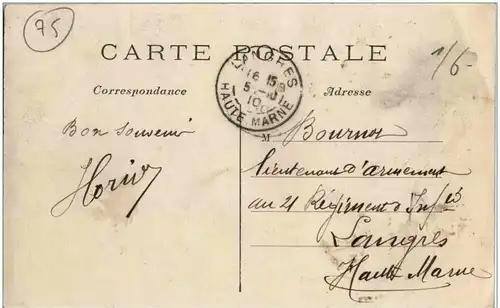 75
CARTE POSTALE
1/6-
LANGRES
16 15
5-10
10
HAUTE MARNE
Correspondance
Adresse
Bon souvenir
M Bournot
lieutenant d'armement
au 21 Régiment d'Inf ie
Langres
Haute Marne